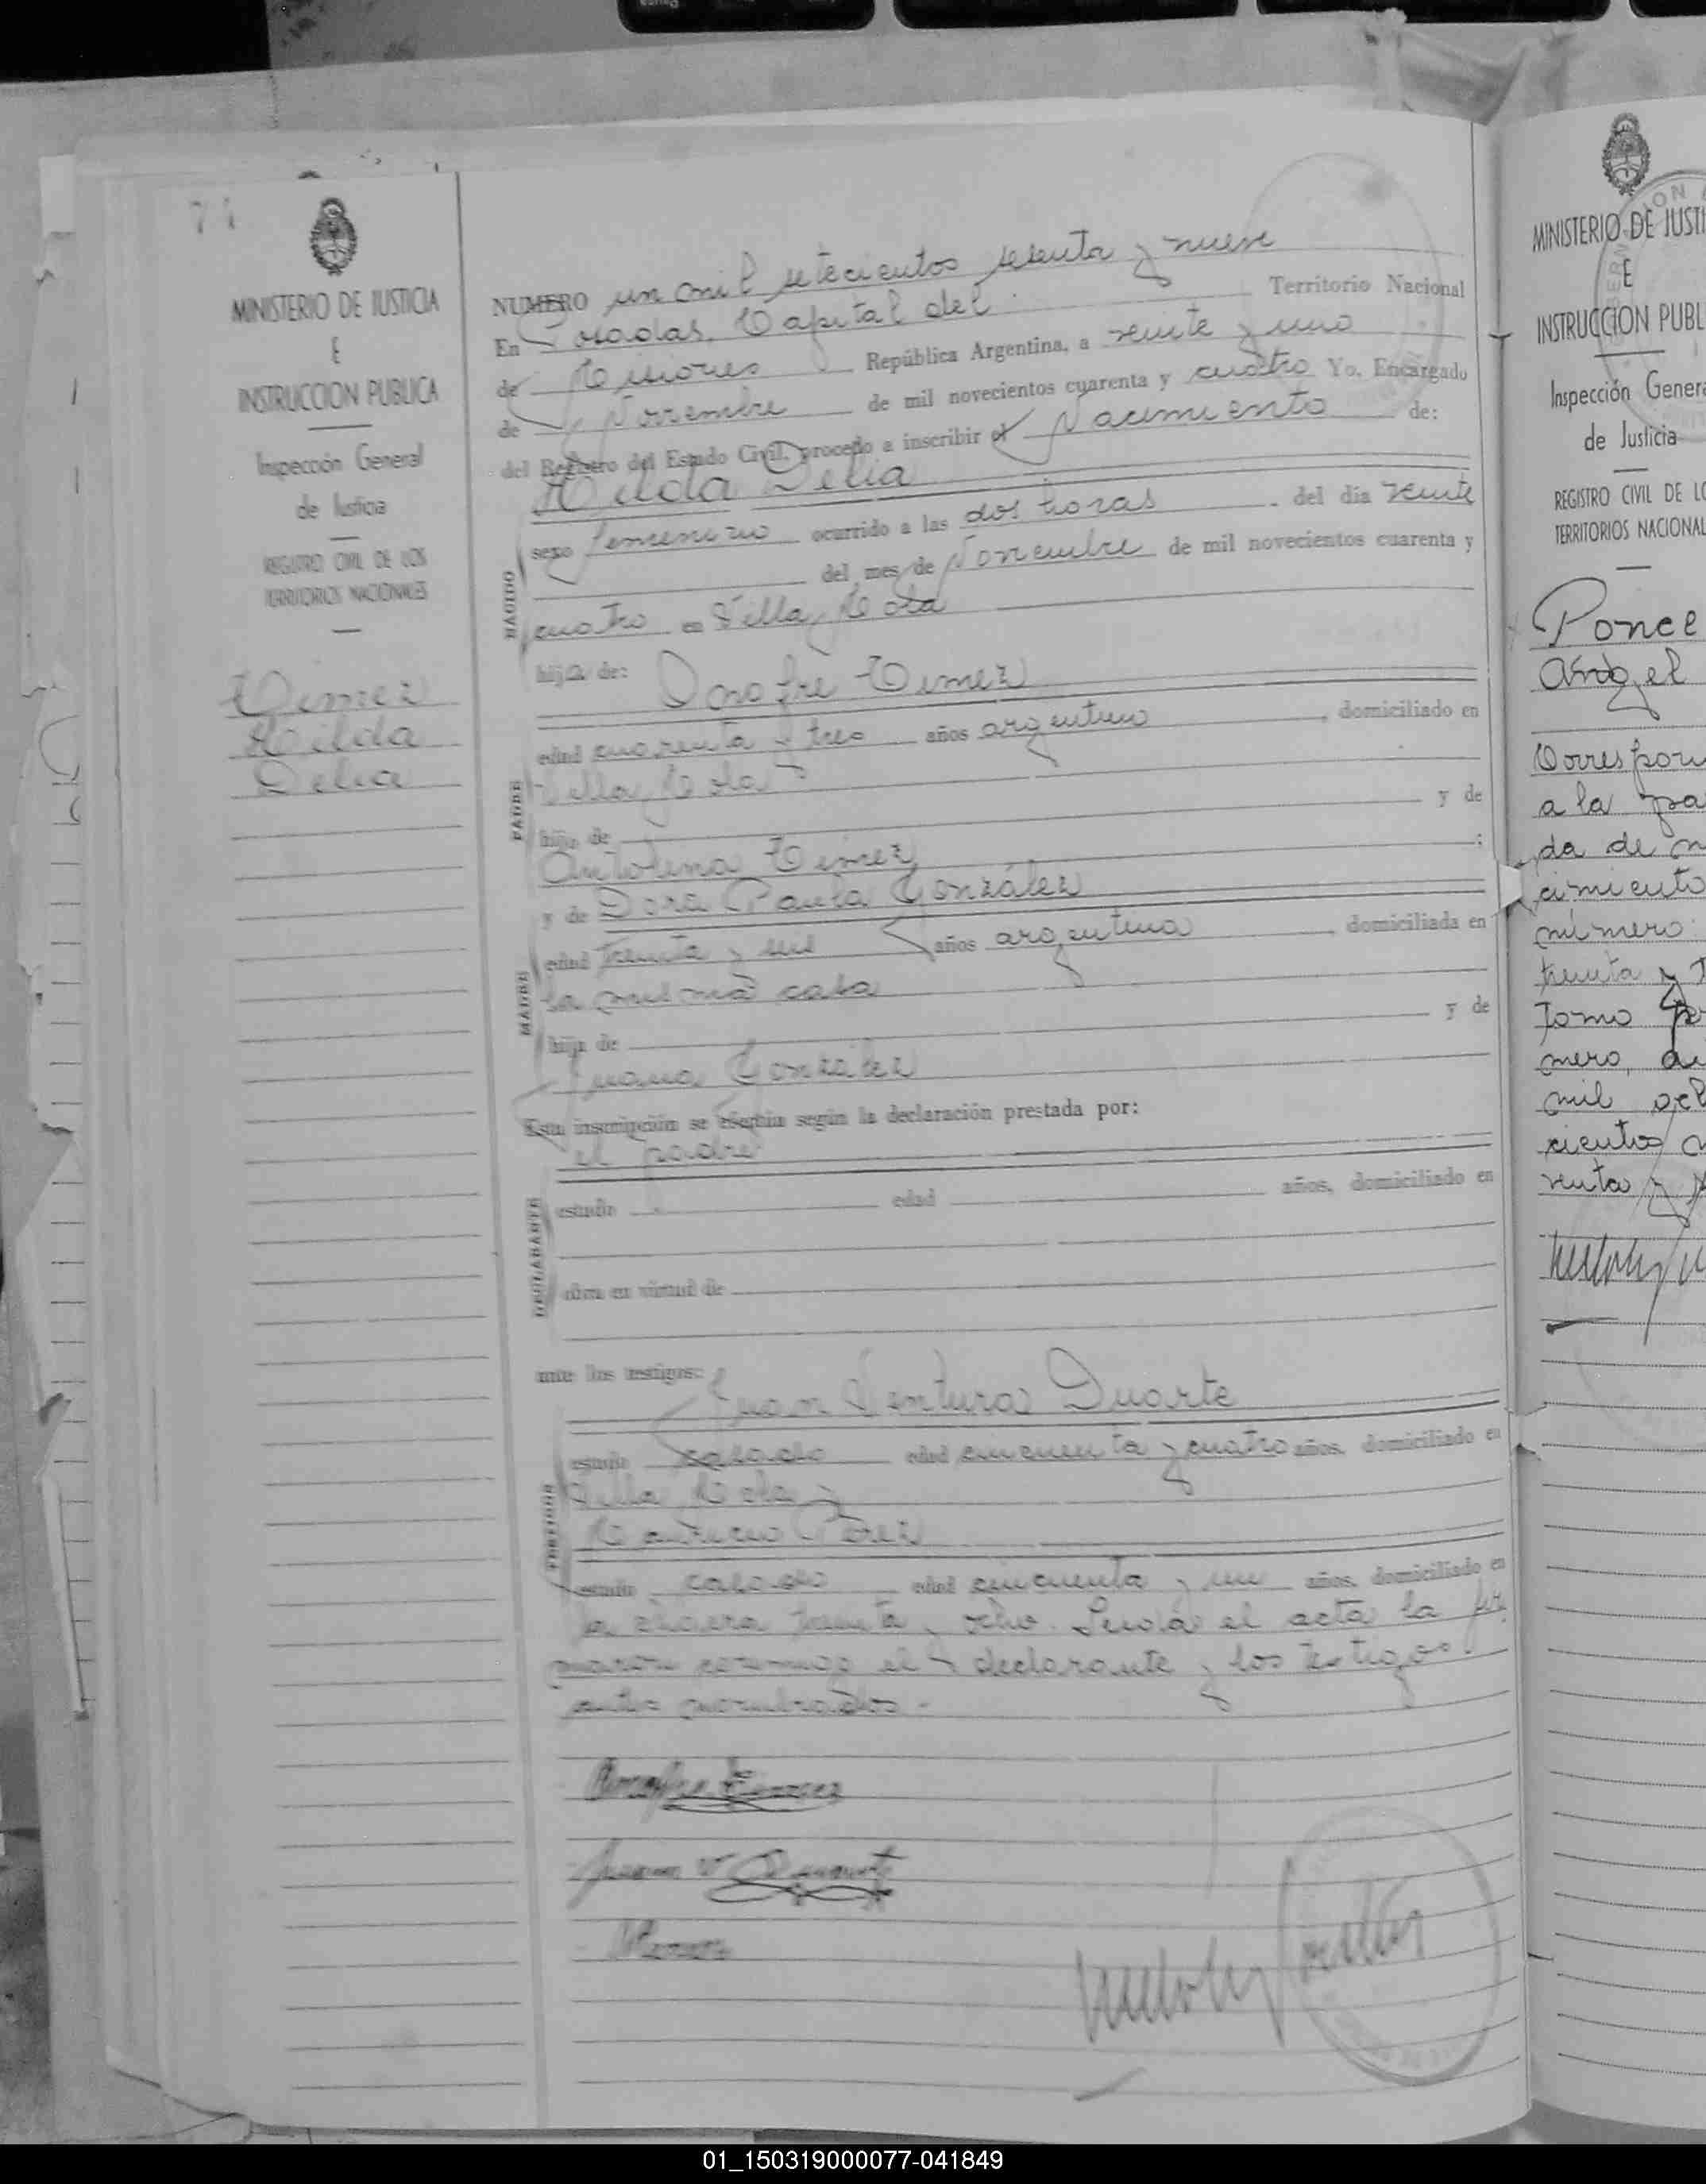 MINISTERIO DE JUSTICIA
E
INSTRUCCION PUBLICA
Inspección General
de Justicia
REGISTRO CIVIL DE LOS
TERRITORIOS NACIONALES
Hilda
Delia
NUMERO un mil setecientos sesenta y nueve
En Posadas, Capital del Territorio Nacional
de Misiones República Argentina, a veinte y uno
de Noviembre de mil novecientos cuarenta y cuatro Yo, Encargado
del Registro del Estado Civil, procedo a inscribir el Nacimiento de:
Hilda Delia
NACIDO
sexo femenino ocurrido a las dos horas del día veinte
del mes de Noviembre de mil novecientos cuarenta y
cuatro en Villa
hija de: Onofre
PADRE
edad cuarenta y tres años argentino, domiciliado en
Villa
hijo de y de
Antolina
y de Dora Paula González
MADRE
edad treinta y seis años argentina domiciliada en
la misma casa
hija de y de
Juana González
Esta inscripción se efectúa según la declaración prestada por:
el padre
DECLARANTE
estado edad años, domiciliado en
obra en virtud de
ante los testigos: Juan Ventura Duarte
TESTIGOS
estado casado edad cincuenta y cuatro años, domiciliado en
Villa y
Pérez
estado casado edad cincuenta y un años, domiciliado en
la treinta y ocho. Leída el acta la fir
maron conmigo el declarante y los testigos
antes nombrados.-
Juan V Duarte
MINISTERIO DE JUSTI
E
INSTRUCCION PUBL
Inspección Genera
de Justicia
REGISTRO CIVIL DE LO
TERRITORIOS NACIONAL
Ponce
Angel
Correspon
a la pa
da de n
cimiento
número
treinta y t
Tomo pri
mero, de
mil och
cientos n
venta y
01_150319000077-041849